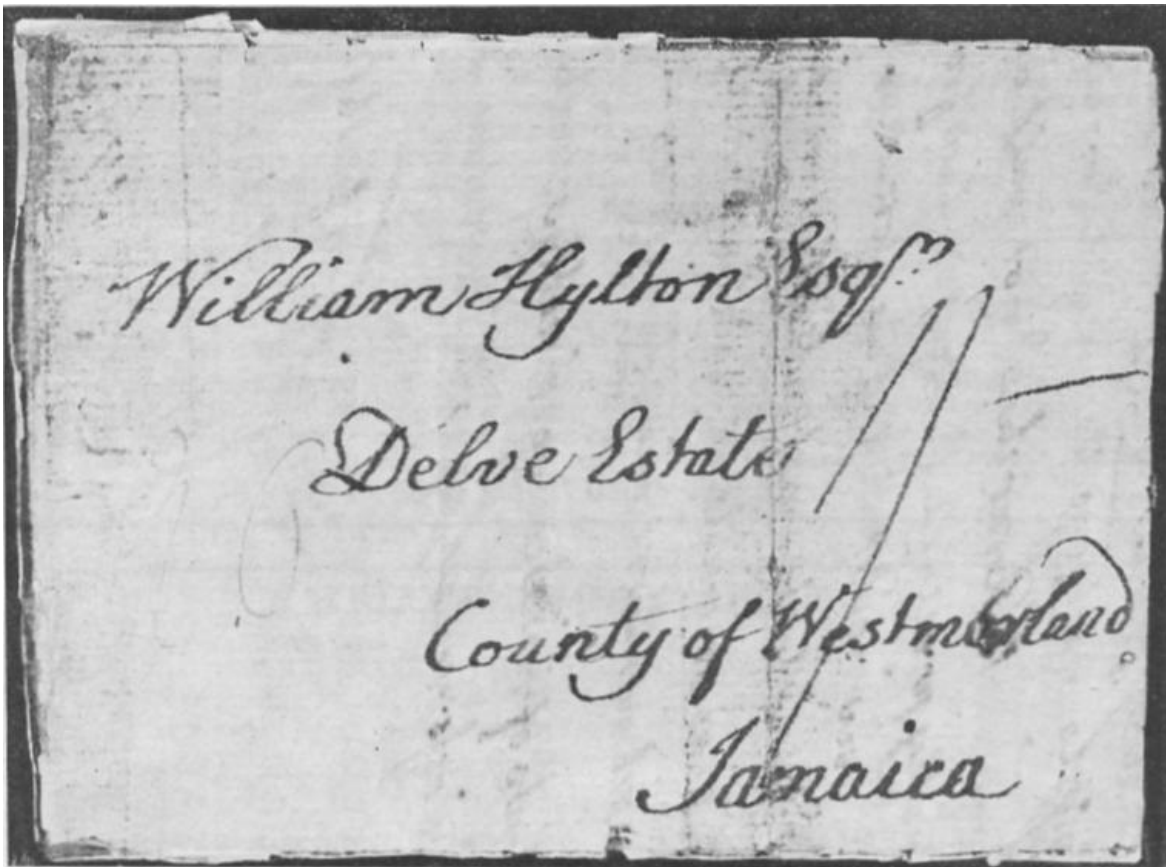 William Hylton Esqr.
Delve Estate
County of Westmorland
Jamaica